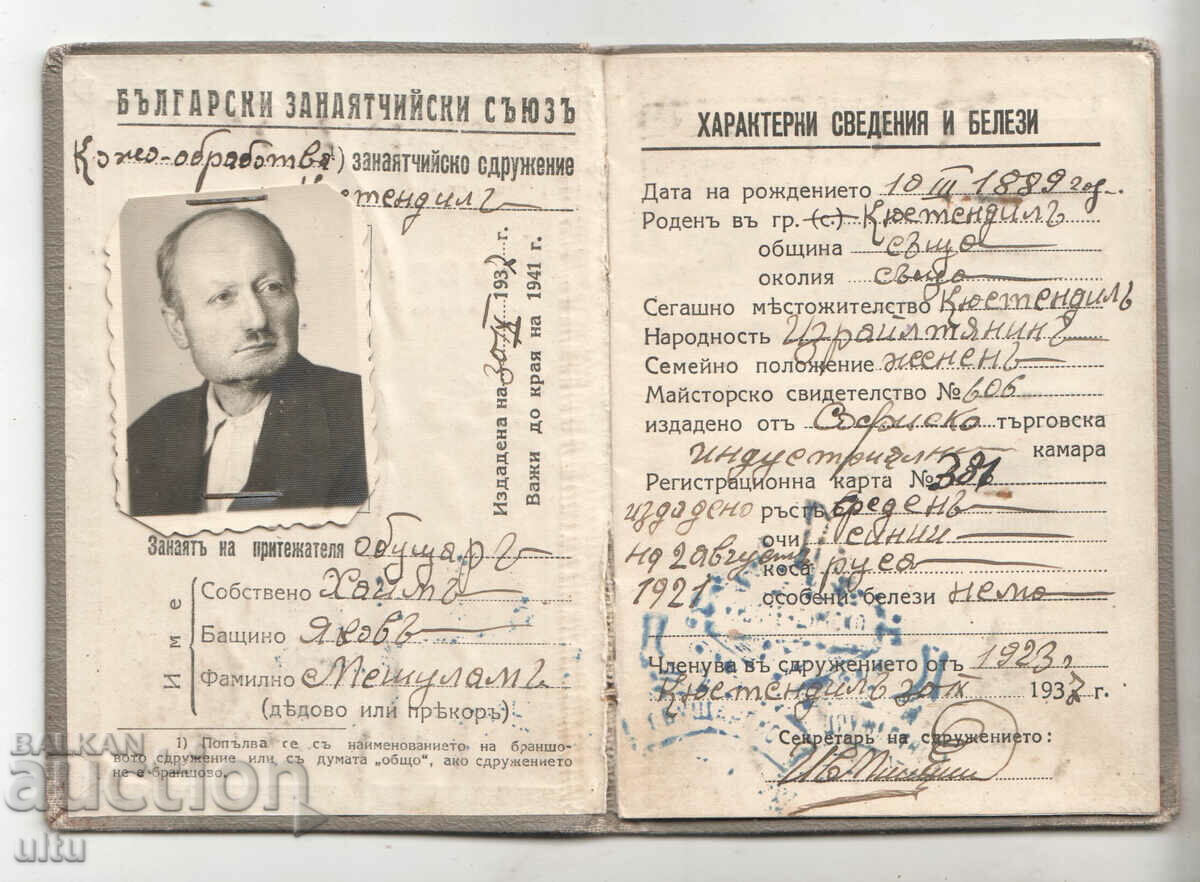 БЪЛГАРСКИ ЗАНАЯТЧИЙСКИ СЪЮЗЪ
Кожо-обработва 1) занаятчийско сдружение
Кюстендилъ
Издадена на 30/IX 1937 г.
Важи до края на 1941 г.
Занаятъ на притежателя обущаръ
Име
Собствено Хаимъ
Бащино Яковъ
Фамилно Мешуламъ
(дѣдово или прѣкоръ)
1) Попълва се съ наименованието на браншо-
вото сдружение или съ думата „общо“, ако сдружението
не е браншово.
ХАРАКТЕРНИ СВЕДЕНИЯ И БЕЛЕЗИ
Дата на рождението 10 III 1889 год.
Роденъ въ гр. (с.) Кюстендилъ
община също
околия също
Сегашно мѣстожителство Кюстендилъ
Народность Израйлтянинъ
Семейно положение жененъ
Майсторско свидетелство № 606
издадено отъ Софийско търговска
индустриална камара
Регистрационна карта № 381
издадено ръстъ среденъ
очи синии
на 2 августъ коса руса
1921 особени белези нема
Членува въ сдружението отъ 1923 г
Кюстендилъ 30 IX 1937 г.
Секретарь на сдружението:
BALKAN
auction
ultu